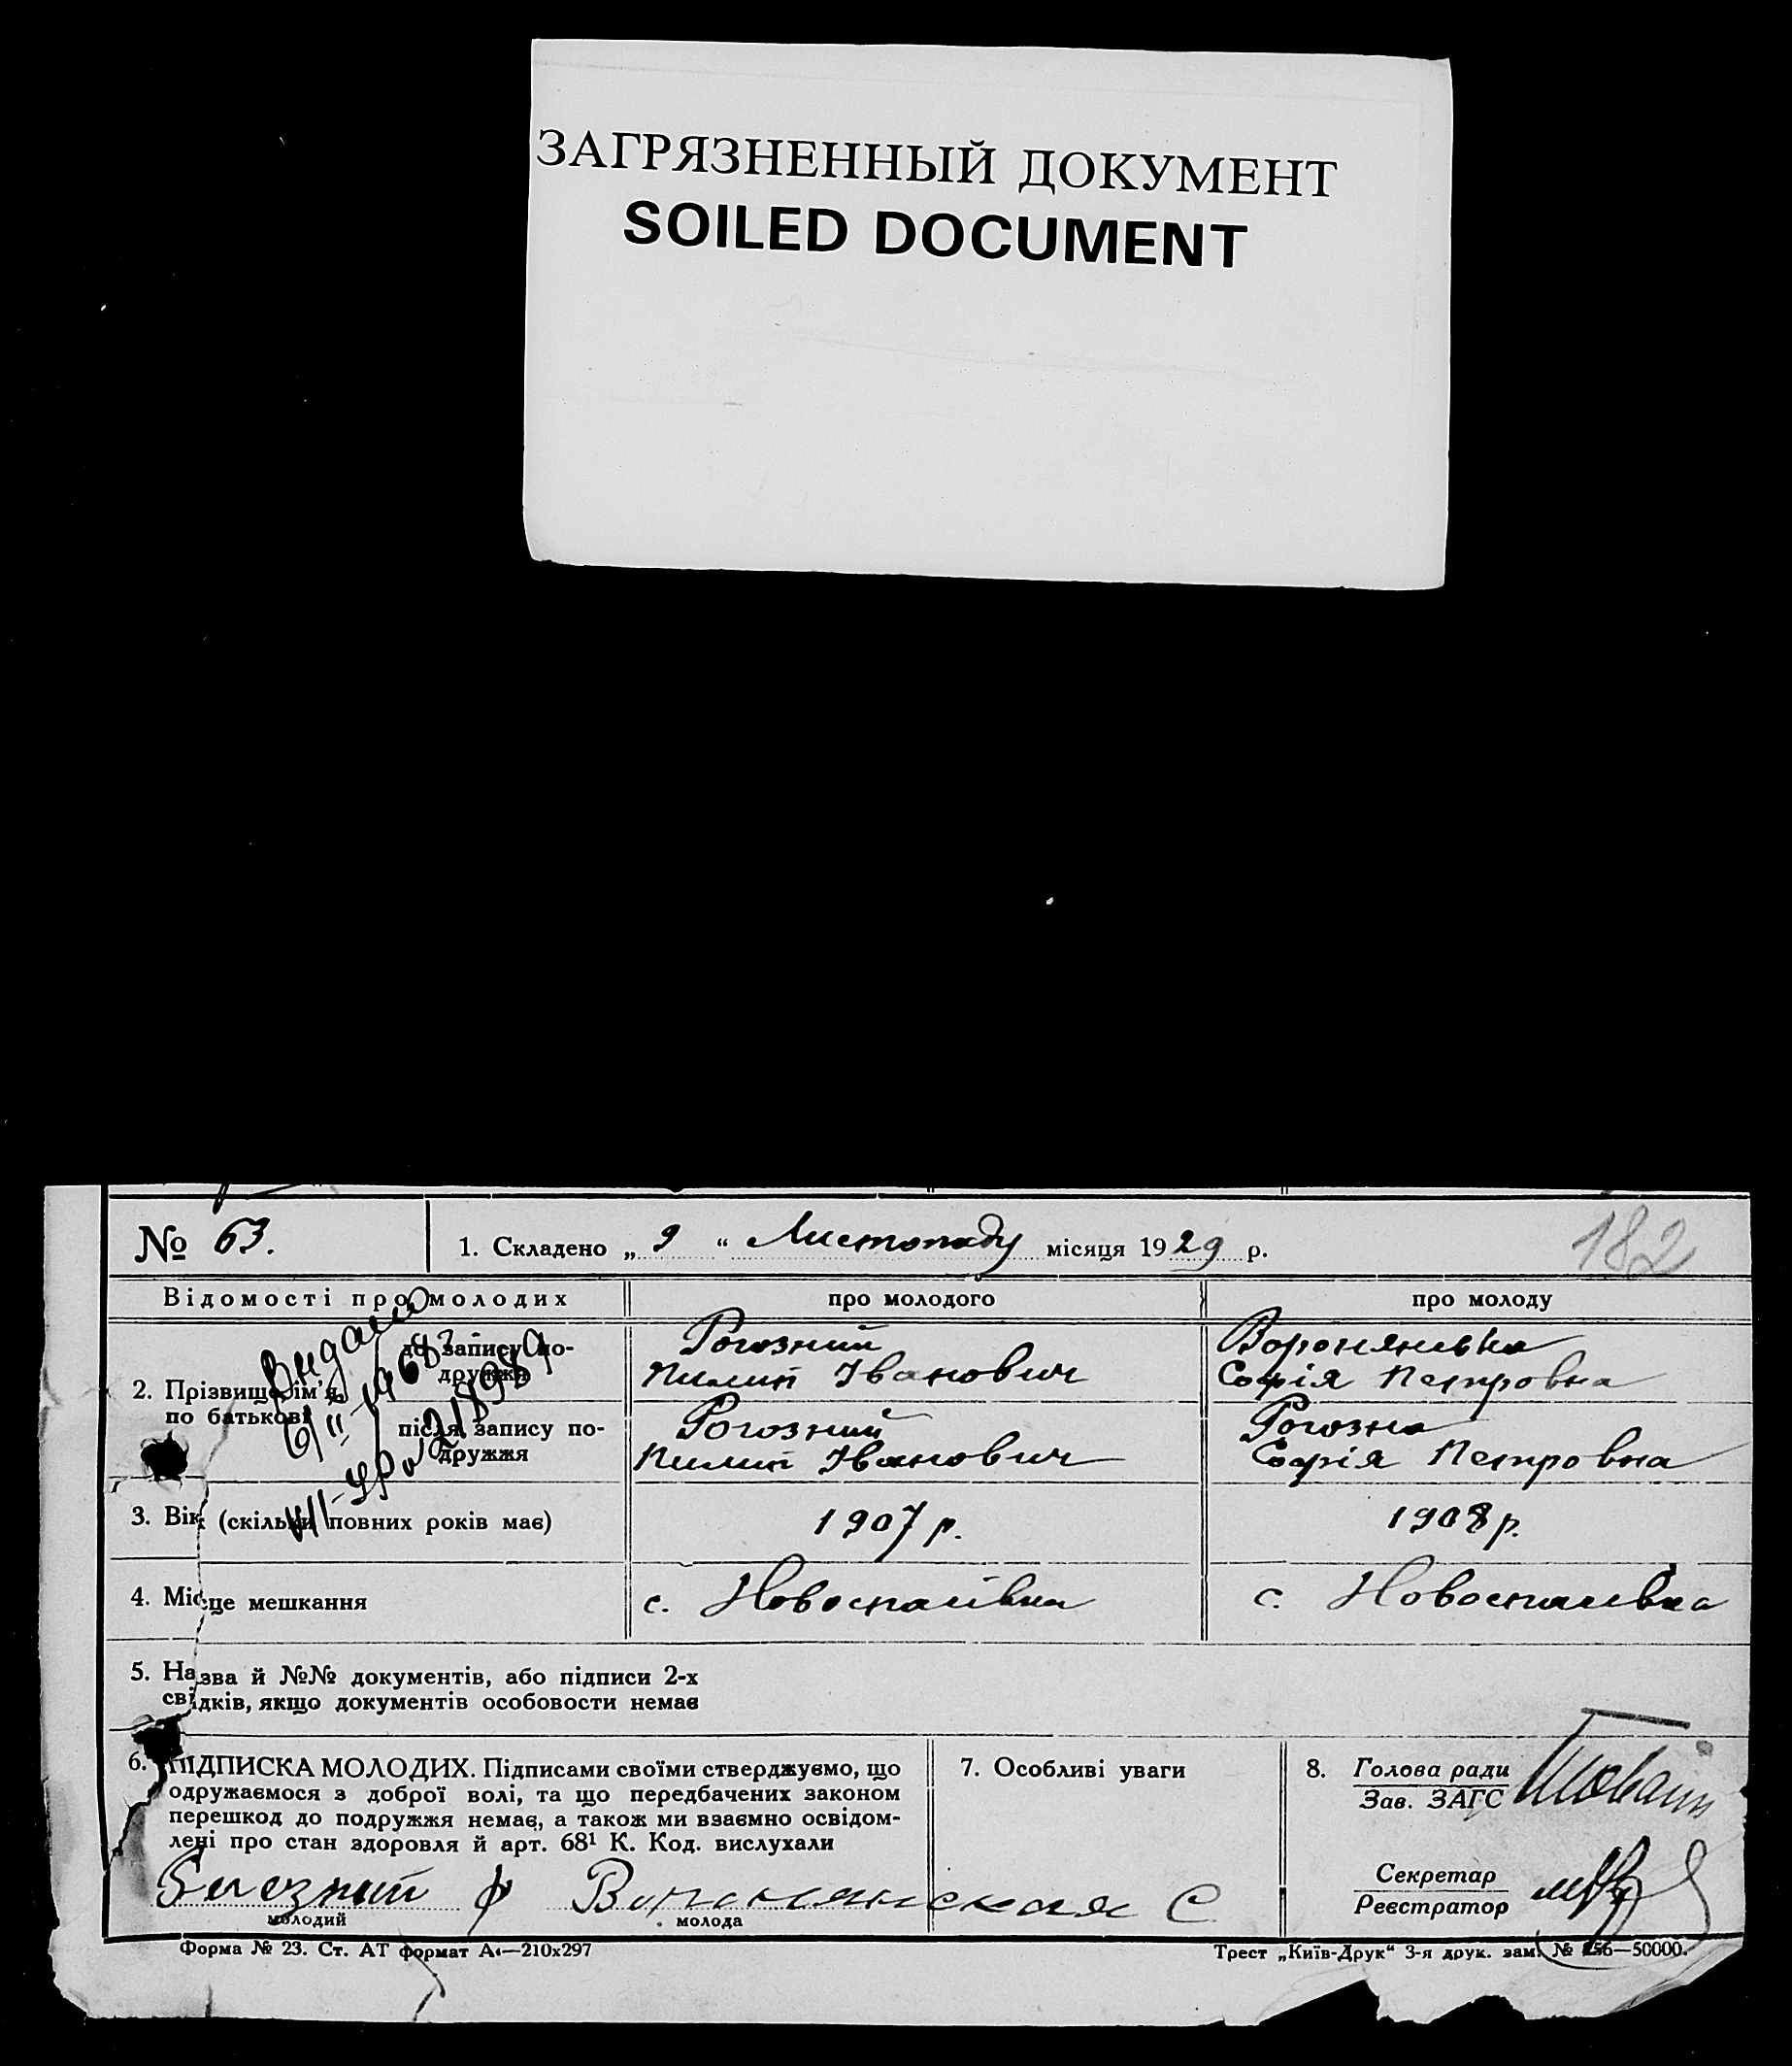 ЗАГРЯЗНЕННЫЙ ДОКУМЕНТ
SOILED DOCUMENT
№ 63.
1. Складено „ 9 “ Листопаду місяця 1929 р.
182
Відомості про молодих
про молодого
про молоду
Видано
6/II-1968
2. Прізвище, ім'я, по батькові
до запису по-
дружжя
Рогозний
Пилип Іванович
Софія Петровна
після запису по-
дружжя
Рогозний
Пилип Іванович
Рогозна
Софія Петровна
3. Вік (скільки повних років має)
1907 р.
1908 р.
4. Місце мешкання
с. Новоспасівка
с. Новоспасівка
5. Назва й №№ документів, або підписи 2-х
свідків, якщо документів особовости немає
6. ПІДПИСКА МОЛОДИХ. Підписами своїми стверджуємо, що
одружаємося з доброї волі, та що передбачених законом
перешкод до подружжя немає, а також ми взаємно освідом-
лені про стан здоровля й арт. 68¹ К. Код. вислухали
молодий
молода
7. Особливі уваги
8. Голова ради
Зав. ЗАГС
Секретар
Реєстратор
Форма № 23. Ст. АТ формат А4—210х297
Трест „Київ-Друк“ 3-я друк. зам. № —50000.